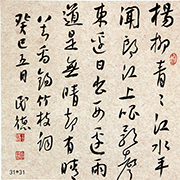 楊柳青々江水平
聞郎江上唱歌聲
東邊日出西邊雨
道是無晴却有晴
禹錫竹枝詞
癸巳五日
31*31